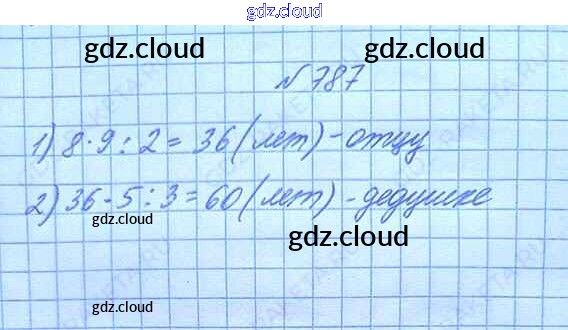 gdz.cloud
gdz.cloud gdz.cloud
№787
1) 8·9:2= 36(лет)-отцу
2) 36·5:3=60(лет)-дедушке
gdz.cloud
gdz.cloud
gdz.cloud